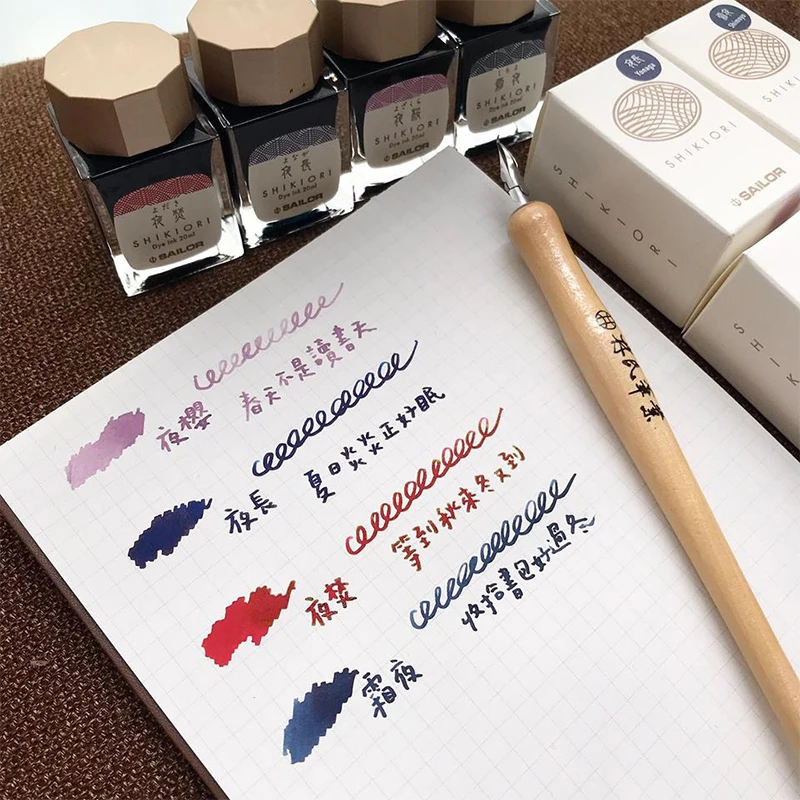 よだき
夜焚
SHIKIORI
Dye ink 20ml
SAILOR
よなが
夜長
SHIKIORI
Dye ink 20ml
SAILOR
よざくら
夜桜
SHIKIORI
Dye ink 20ml
SAILOR
しもよ
霜夜
SHIKIORI
Dye ink 20ml
SAILOR
夜長
Yonaga
SHIKIORI
SAILOR
SHIKIORI
Shimoyo
SHIKIORI
SHIKIORI
夜櫻 春天不是讀書天
夜長 夏日炎炎正好眠
夜焚 等到秋來冬又到
霜夜 收拾書包好過冬